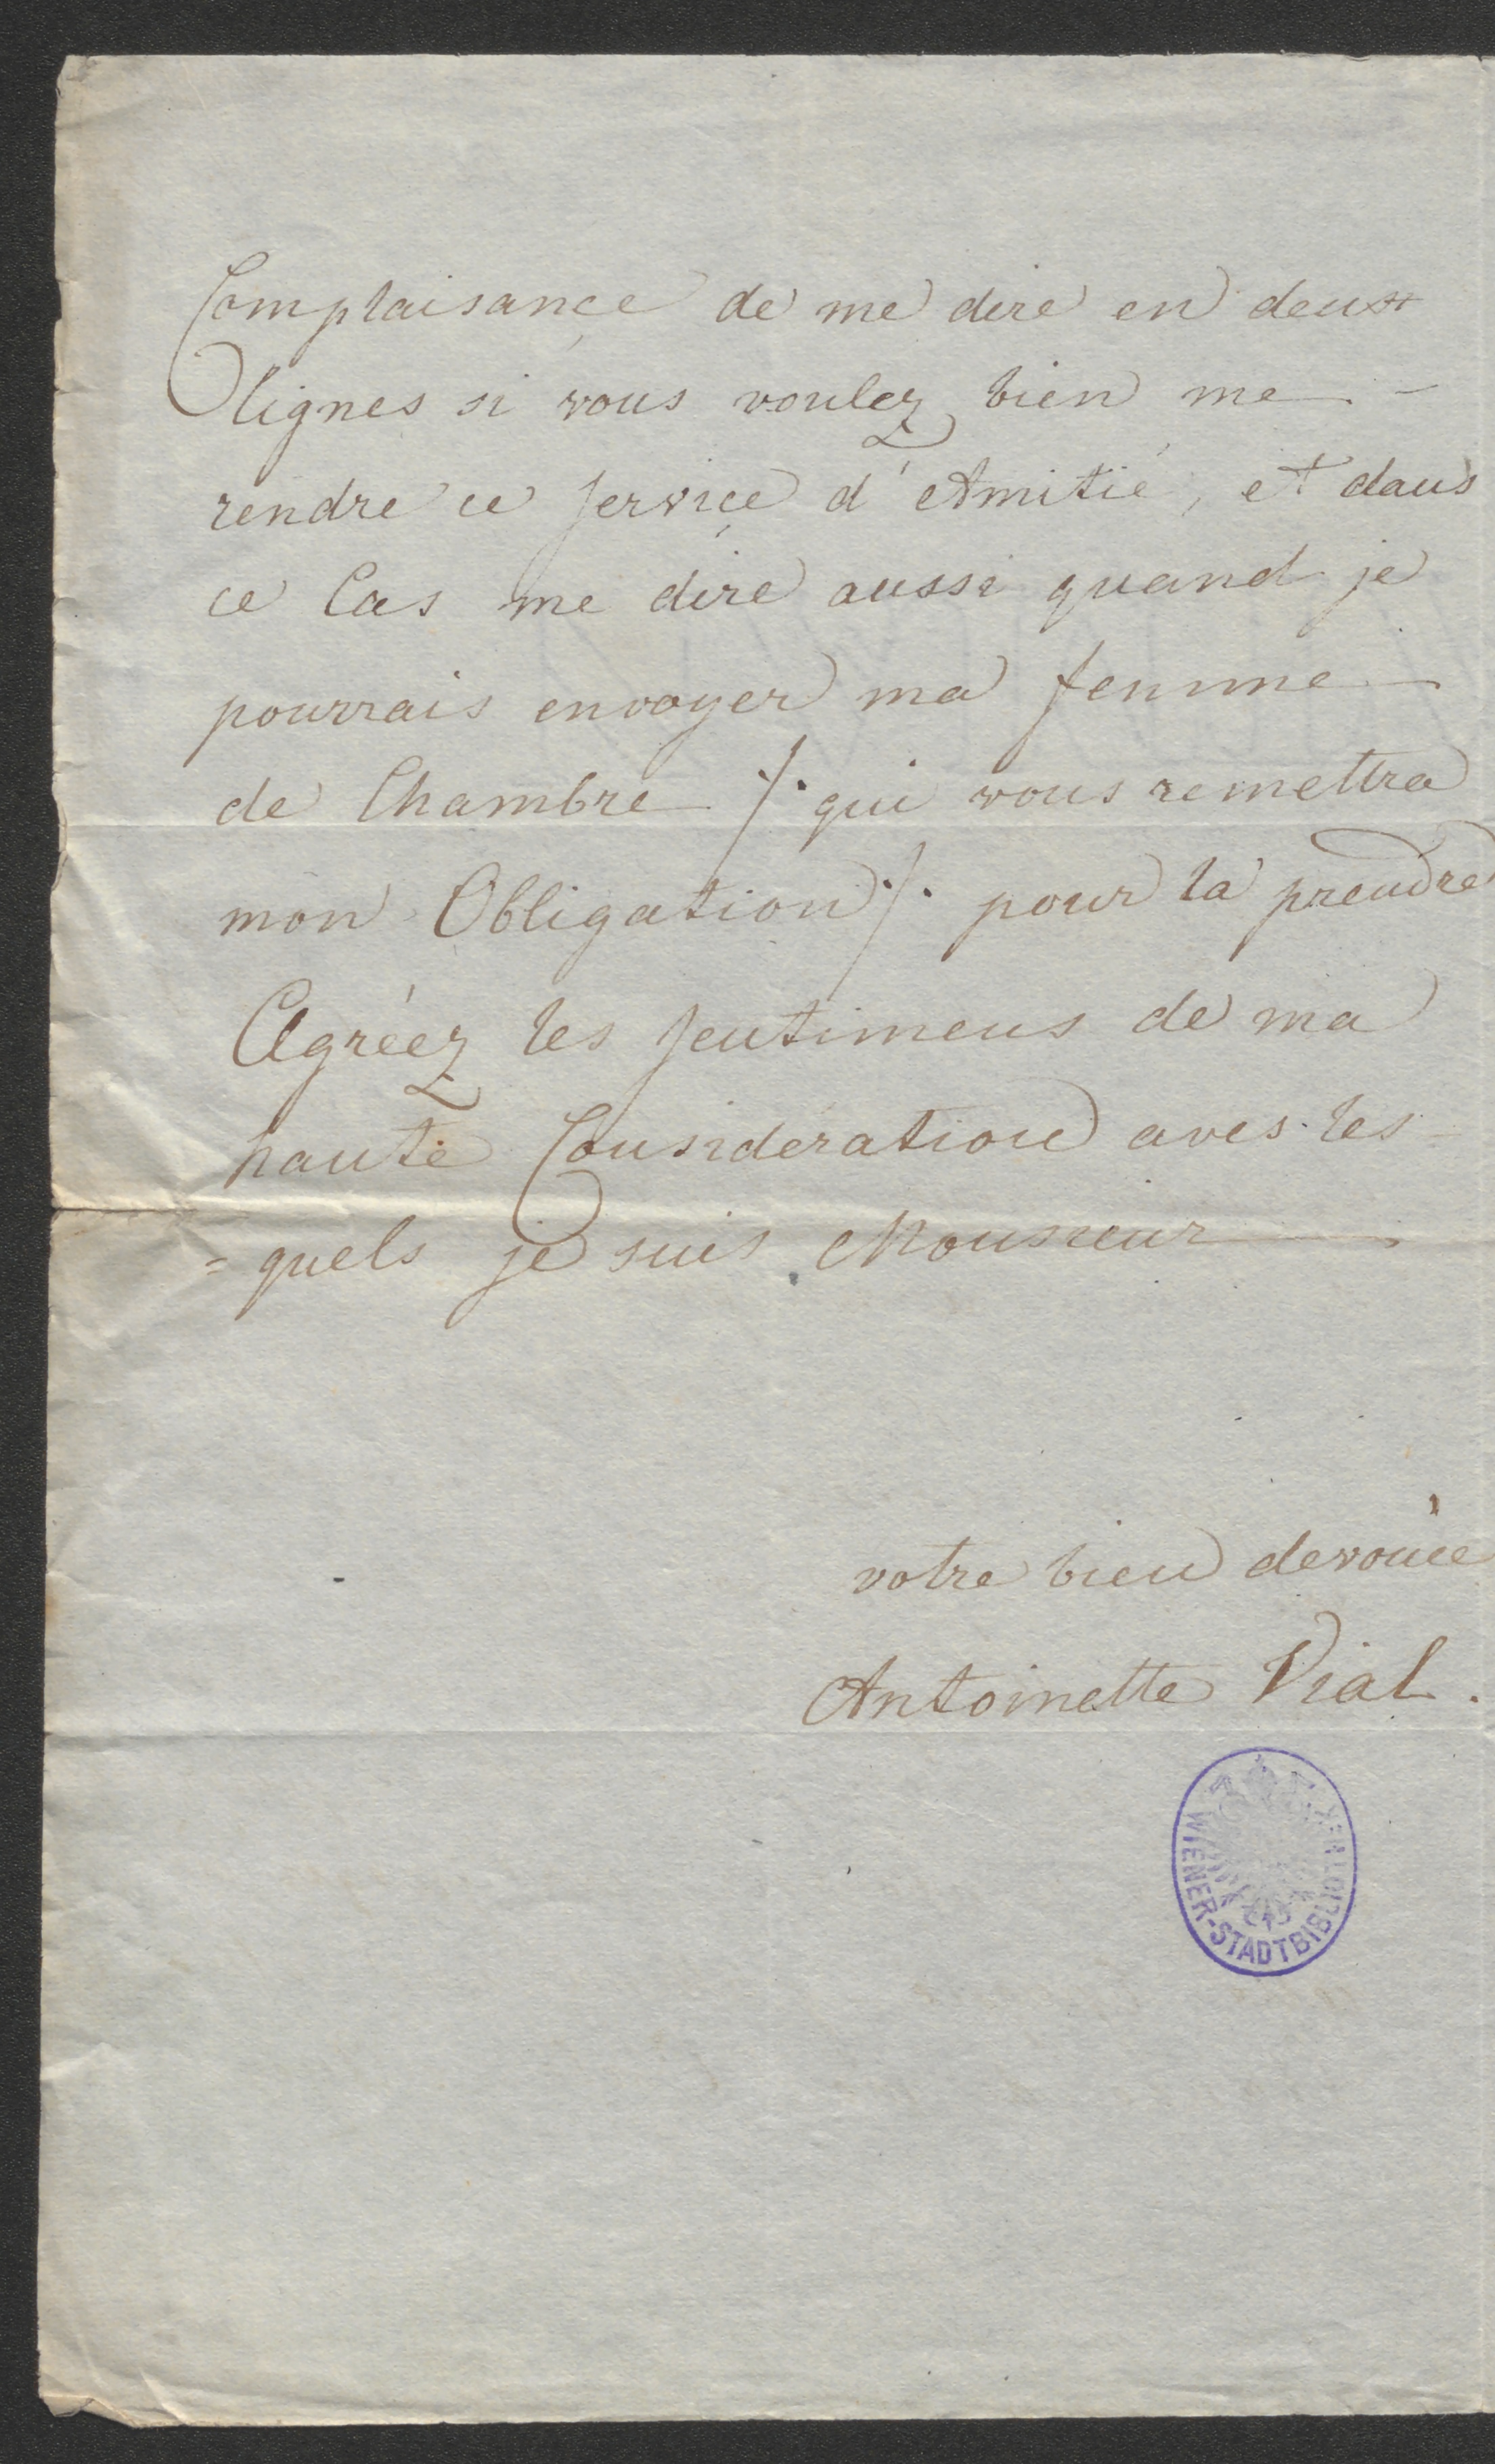 Complaisance de me dire en deux
lignes si vous voulez bien me -
rendre ce service d'Amitié, et dans
ce Cas me dire aussi quand je
pourrais envoyer ma femme
de Chambre ./. qui vous remettra
mon Obligation ./. pour la prendre
Agréez les sentimens de ma
haute Consideration aves les=
=quels je suis Monsieur
votre bien devouée
Antoinette Vial.
WIENER-STADTBIBLIOTHEK